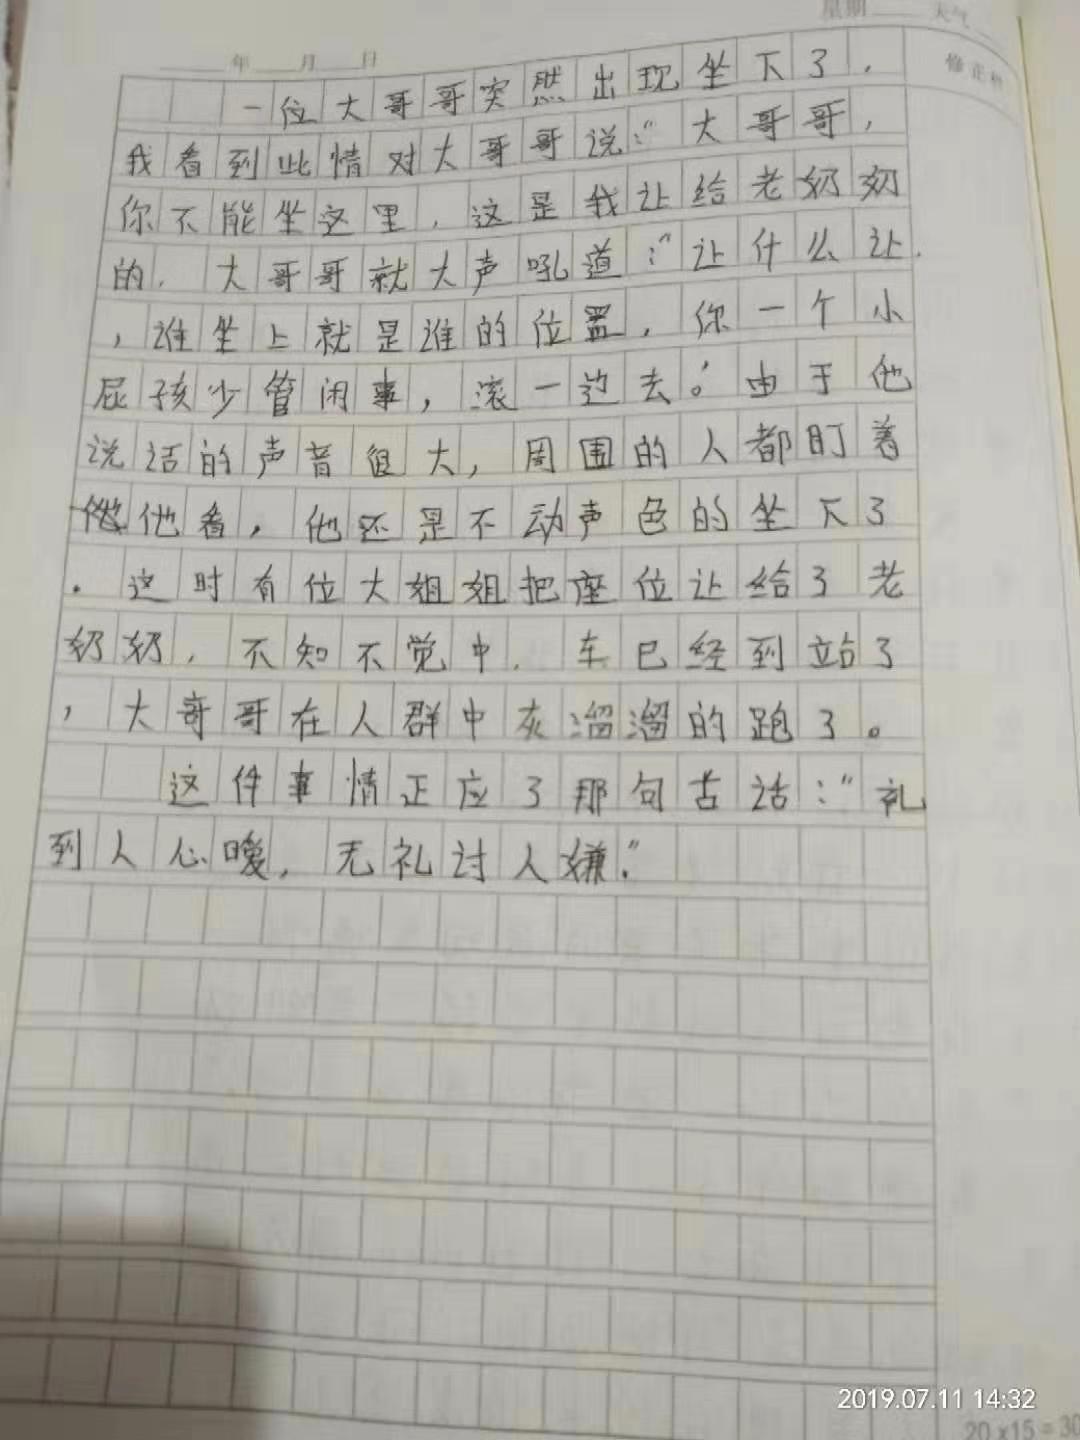 星期 天气
年 月 日
一位大哥哥突然出现坐下了.
我看到此情对大哥哥说:"大哥哥,
你不能坐这里.这是我让给老奶奶
的.大哥哥就大声吼道:"让什么让.
,谁坐上就是谁的位置,你一个小
屁孩少管闲事,滚一边去。'由于他
说话的声音很大,周围的人都盯着
他看,他还是不动声色的坐下了
.这时有位大姐姐把座位让给了老
奶奶,不知不觉中.车已经到站了
,大哥哥在人群中灰溜溜的跑了。
这件事情正应了那句古话:"礼
到人心暖,无礼讨人嫌."
2019.07.11 14:32
20×15=30